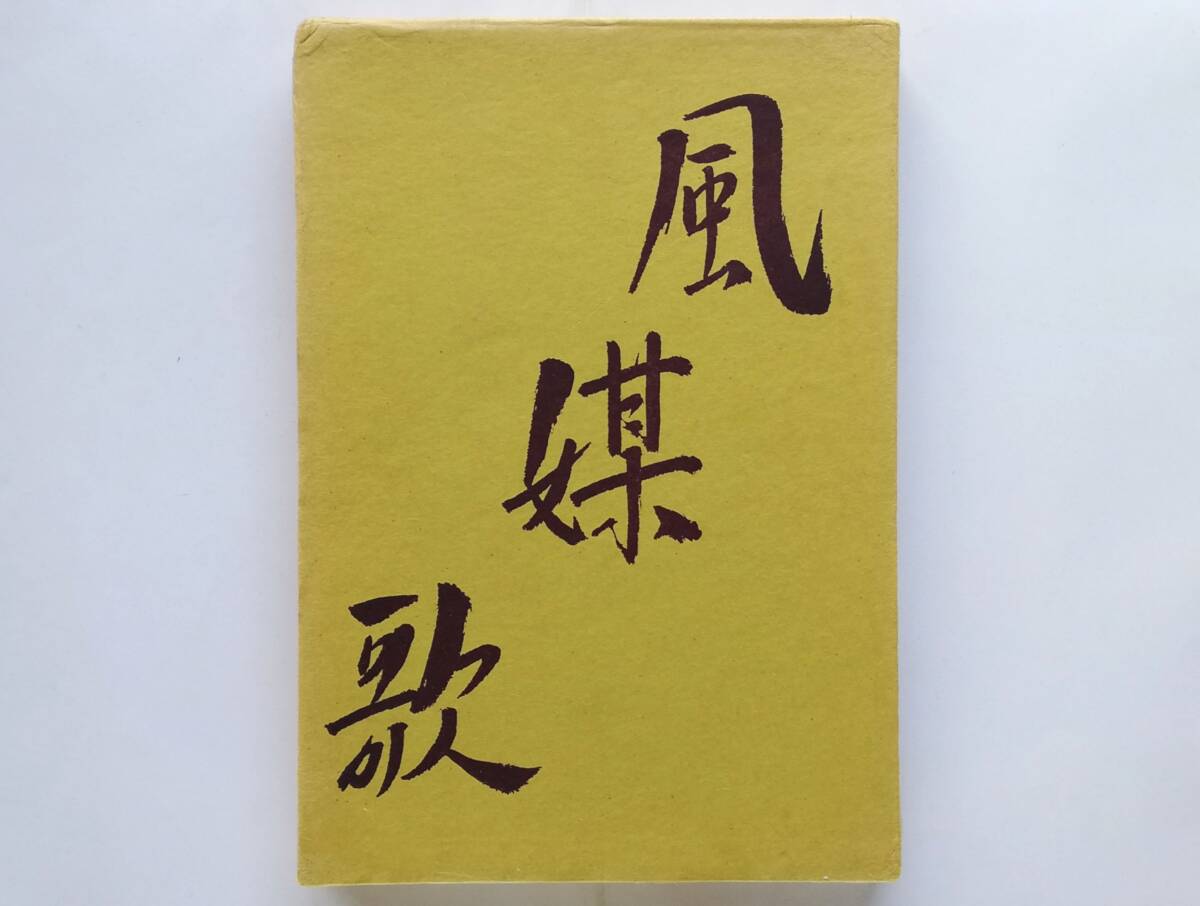 風媒歌